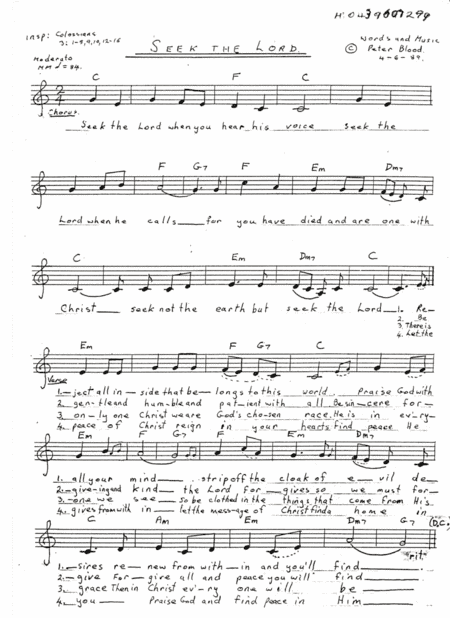 H: 0439607299
insp: Colossians
3: 1-3, 9, 10, 12-16
SEEK THE LORD
Words and Music
© Peter Blood.
4-6-89.
Moderato
MM ♩= 84.
C F C
Chorus.
Seek the Lord when you hear his voice Seek the
F G7 F Em Dm7
Lord when he calls___ for you have died and are one with
C Em Dm7 C
Christ___ seek not the earth but seek the Lord___ 1. Re-
2. Be
3. There is
4. Let the
Em F C F G7
Verse
1.-ject all in-side that be-longs to this world Praise God with
2. gen-tle and hum-ble and pat-ient with all Be sin-cere for-
3. on-ly one Christ we are God's cho-sen race. He is in ev'ry-
4. peace of Christ reign in your hearts find peace He
Em F G7 F Em Dm7
1. all your mind___ strip off the cloak of e-vil de-
2.-give-ing and kind___ the Lord for-gives so we must for-
3.-one we see___ so be clothed in the things that come from His
4. gives from with in___ let the message of Christ find a home in
C Am Em F Dm7 G7 (D.C.)
rit.
1.-sires re-new from with-in and you'll find___
2.-give for-give all and peace you will find___
3. grace Then in Christ ev'ry one will be___
4. you___ Praise God and find peace in Him